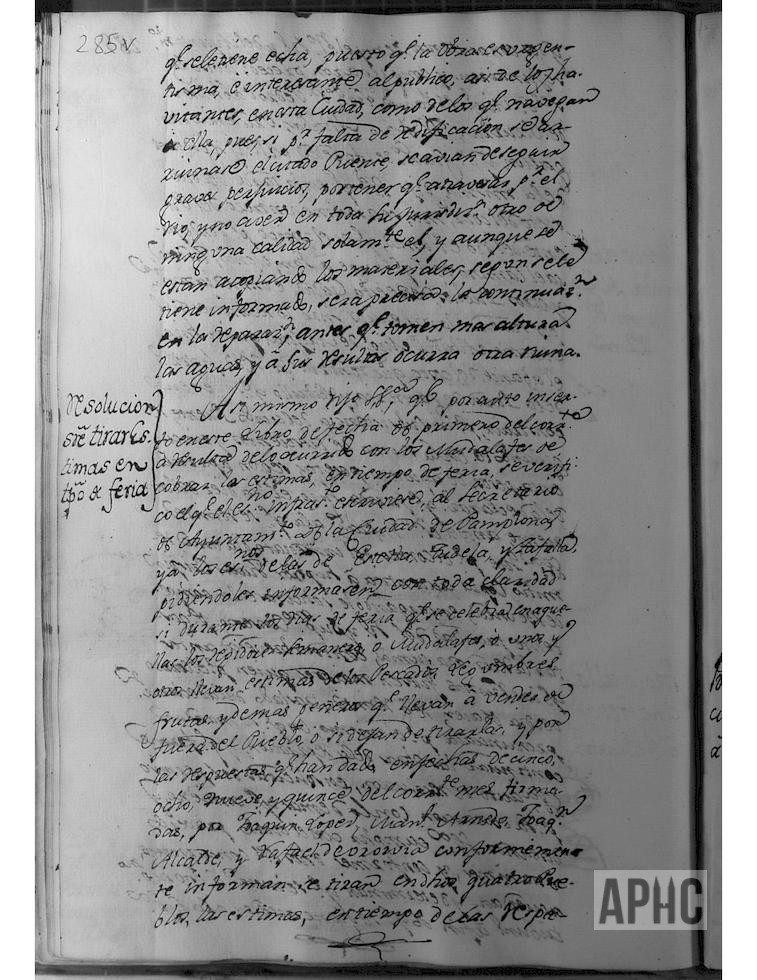 285v
q.e se le tiene echa, puesto q.e la obra es urgen-
tisima, è interesante al publico, asi de los ha-
vitantes, en esta Ciudad, como de los q.e navegan
a ella, pues si p.r falta de redificacion se ar-
ruinase el citado Puente, se avian de seguir
graves perjuicios, por tener q.e atravesar p.r el
rio, y no aver en toda su Jurisdi.n otro de
ninguna calidad solam.te el, y aunque se
estan acopiando los materiales, segun se le
tiene informado, sera preciso la continuaz.n
en la reparaz.n, antes q.e tomen mas altura
las aguas, y â sus resultas ocurra otra ruina.
Resolucion
sre tirar las es-
timas en
tpõ de feria
Asi mismo dijo q.e por auto inser-
to en este Libro de fecha de primero del corr.te
a resulta de lo ocurrido con los Mudalafes de
cobrar las estimas, en tiempo de feria, se verifi-
co el q.e el es.no infras.to escriviese, al Secretario
de Ayuntam.to de la Ciudad de Pamplona
y a los es.nos de las de Estella Tudela, y Tafalla,
pidiendoles informasen con toda claridad
si durante los dias de feria q.e se celebra en aque-
llas los regidores o Mudalafes, o unos y
otros llevan estimas de los Pescados legumbres
frutas, y demas generos q.e llevan â vender de
fuera del Pueblo, o si dejan de tirarlas, y por
las respuestas q.e han dado, en fechas de cinco,
ocho, nueve, y quince del corr.te mes, firma-
das, por Joaquin Lopez, Man.l Arnedo, Joaq.n
Alcalde, y Rafael de Ororvia conformemen-
te informan se tiran en dhos quatro Pue-
blos, las estimas, en tiempo de las respe-
APHC